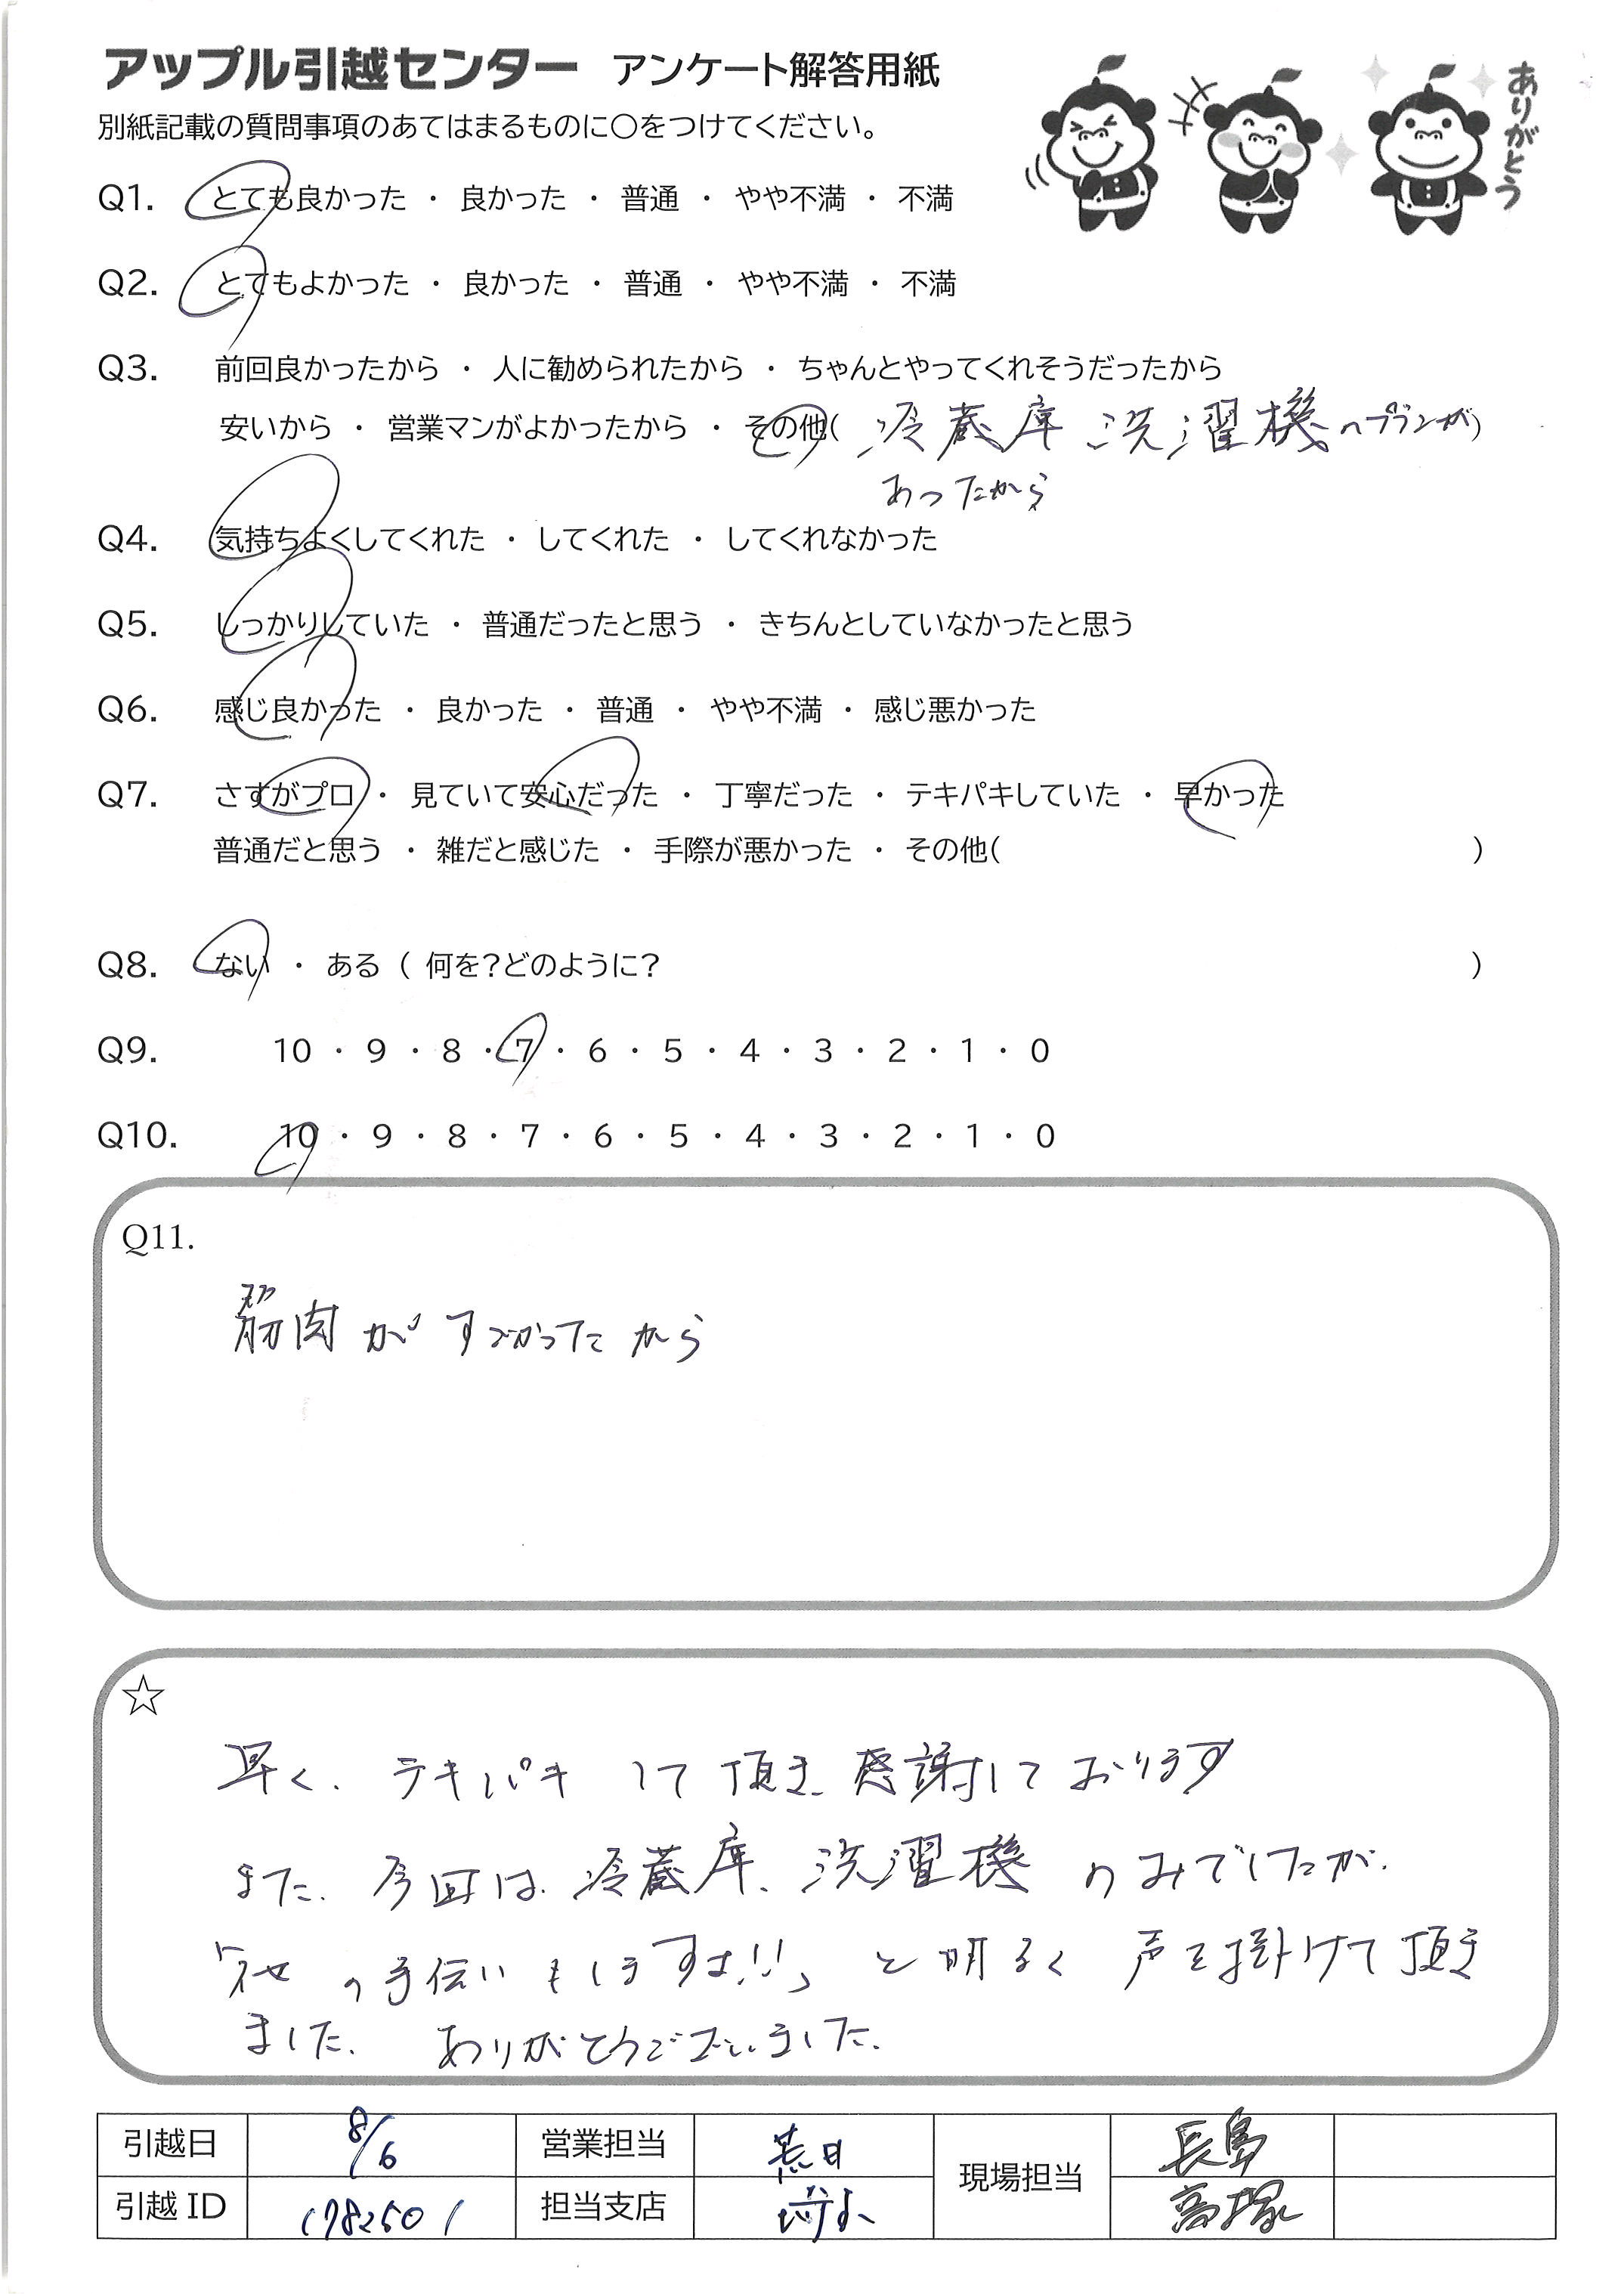 アップル引越センター アンケート解答用紙
ありがとう
別紙記載の質問事項のあてはまるものに○をつけてください。
Q1. とても良かった ・ 良かった ・ 普通 ・ やや不満 ・ 不満
Q2. とてもよかった ・ 良かった ・ 普通 ・ やや不満 ・ 不満
Q3. 前回良かったから ・ 人に勧められたから ・ ちゃんとやってくれそうだったから
安いから ・ 営業マンがよかったから ・ その他( 冷蔵庫 洗濯機のプランが)
あったから
Q4. 気持ちよくしてくれた ・ してくれた ・ してくれなかった
Q5. しっかりしていた ・ 普通だったと思う ・ きちんとしていなかったと思う
Q6. 感じ良かった ・ 良かった ・ 普通 ・ やや不満 ・ 感じ悪かった
Q7. さすがプロ ・ 見ていて安心だった ・ 丁寧だった ・ テキパキしていた ・ 早かった
普通だと思う ・ 雑だと感じた ・ 手際が悪かった ・ その他( )
Q8. ない ・ ある ( 何を?どのように? )
Q9. 10 ・ 9 ・ 8 ・ 7 ・ 6 ・ 5 ・ 4 ・ 3 ・ 2 ・ 1 ・ 0
Q10. 10 ・ 9 ・ 8 ・ 7 ・ 6 ・ 5 ・ 4 ・ 3 ・ 2 ・ 1 ・ 0
Q11.
筋肉が すごかったから
☆
早く、テキパキ して頂き、感謝しております
また、今回は、冷蔵庫、洗濯機 のみでしたが、
「他の手伝いもしますよ!!」と明るく 声を掛けて頂き
ました。 ありがとうございました。
引越日 8/6 営業担当 現場担当 長島
引越 ID 1782501 担当支店 埼玉 高塚